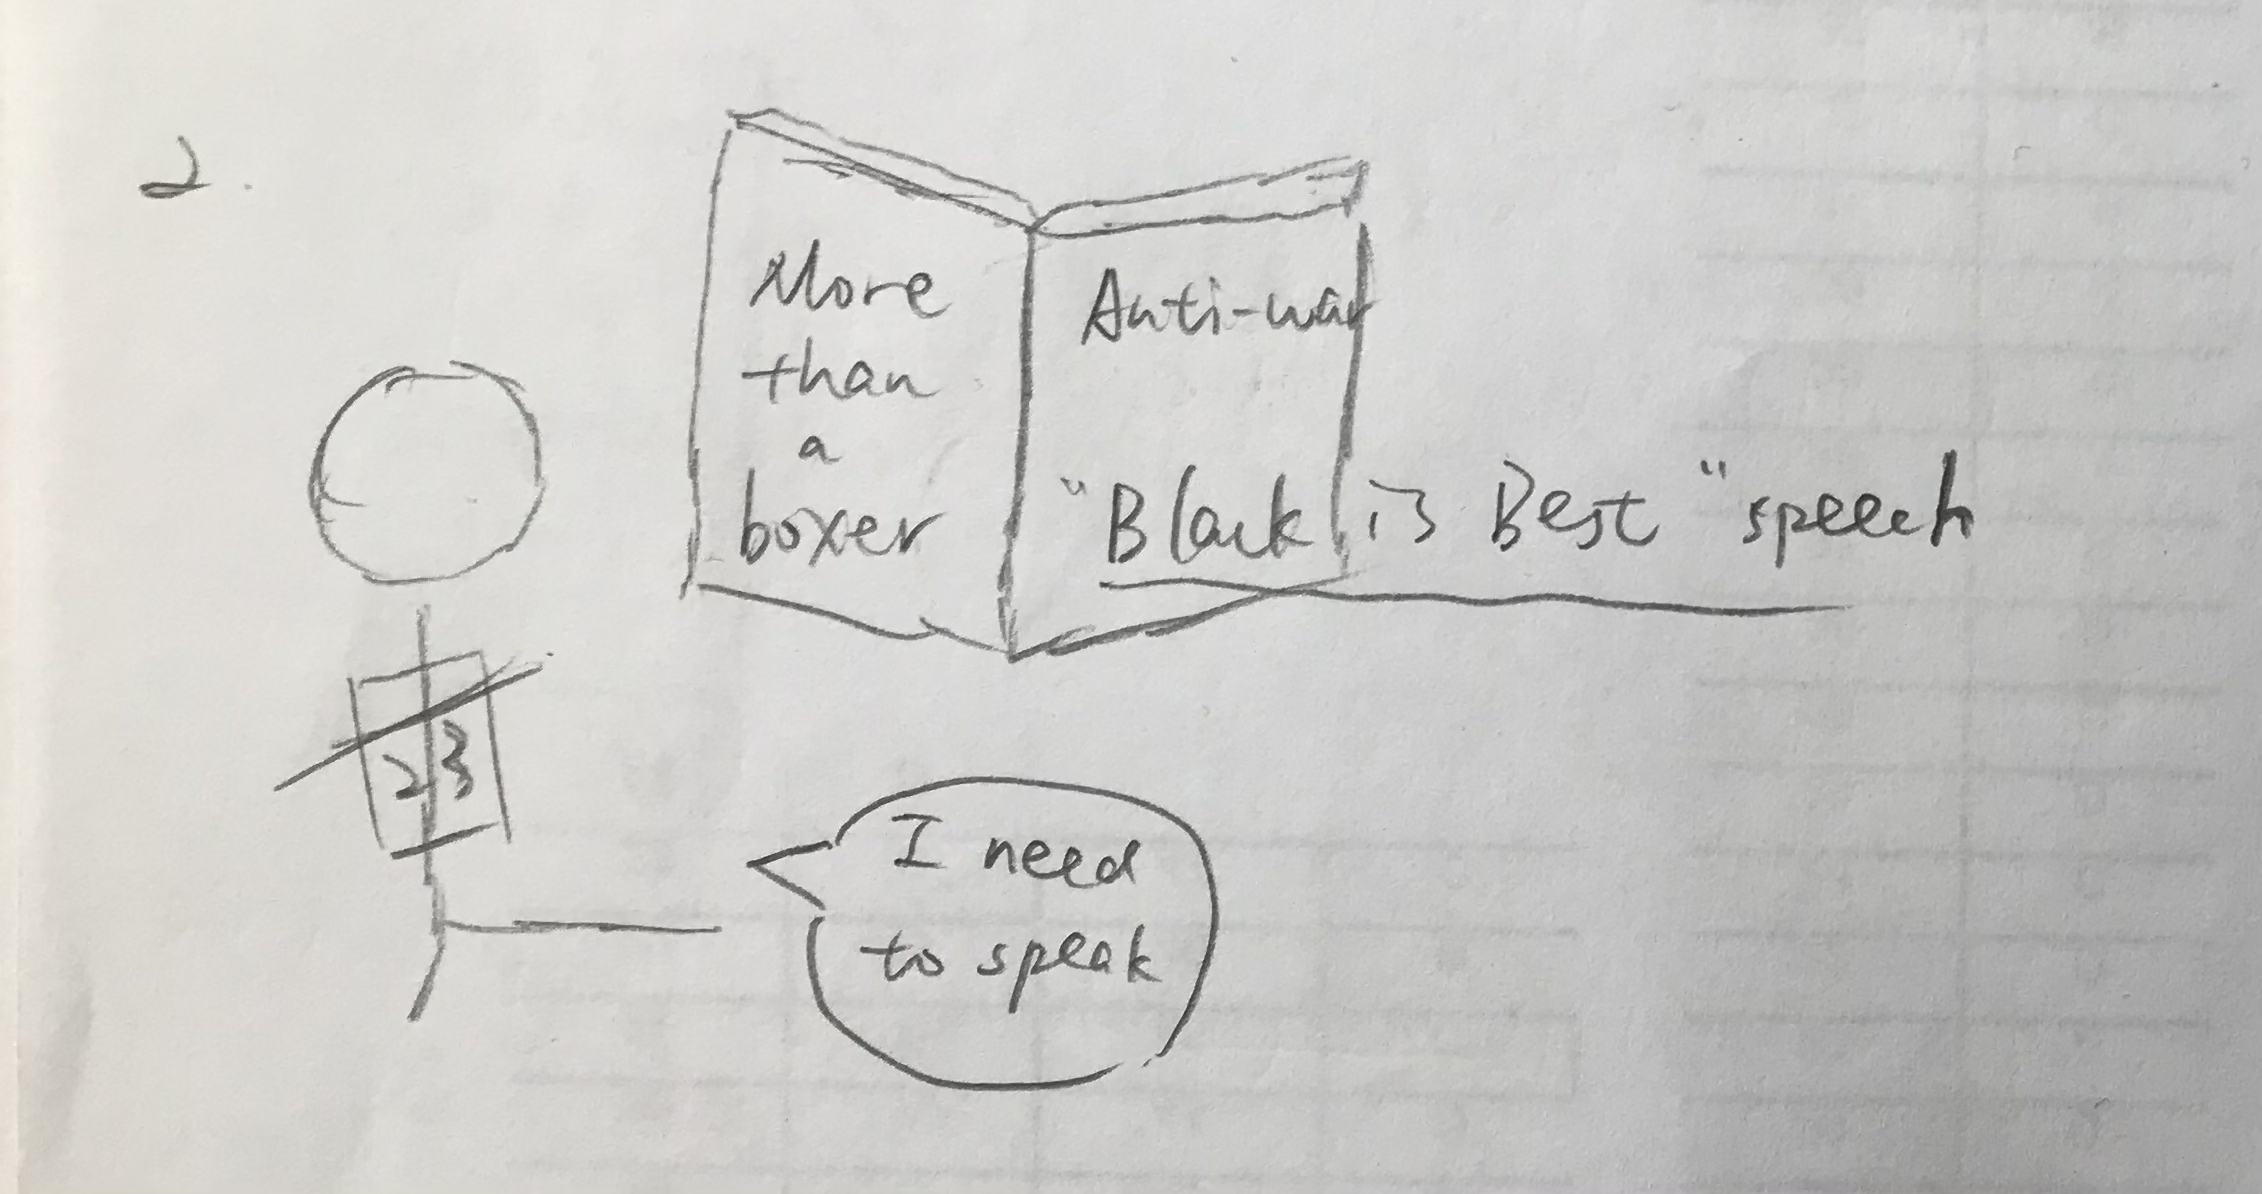 2.
More
than
a
boxer
Anti-war
"Black is Best" speech
23
I need
to speak